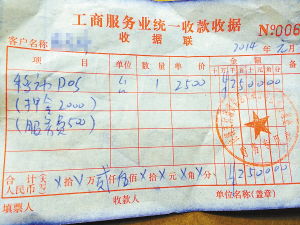 工商服务业统一收款收据
收据联 No006
客户名称 2014年元月
项目 单位 数量 单价 金额
十 万 千 百 十 元 角 分
POS 1 2500 ¥250000
(押金2000)
(服务费500)
合计 (大写) 人民币 ¥拾¥万贰仟伍佰¥拾¥元¥角¥分 ¥250000
填票人 收款人 单位名称(盖章)